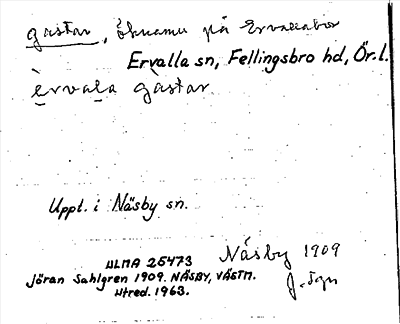 gastar, öknamn på Ervallabor
Ervalla sn, Fellingsbro hd, Ör.l.
ervala gastar
Uppl. i Näsby sn.
Näsby 1909
ULMA 25473
Jöran Sahlgren 1909. NÄSBY, VÄSTM.
Utred. 1963.
J. Sgn